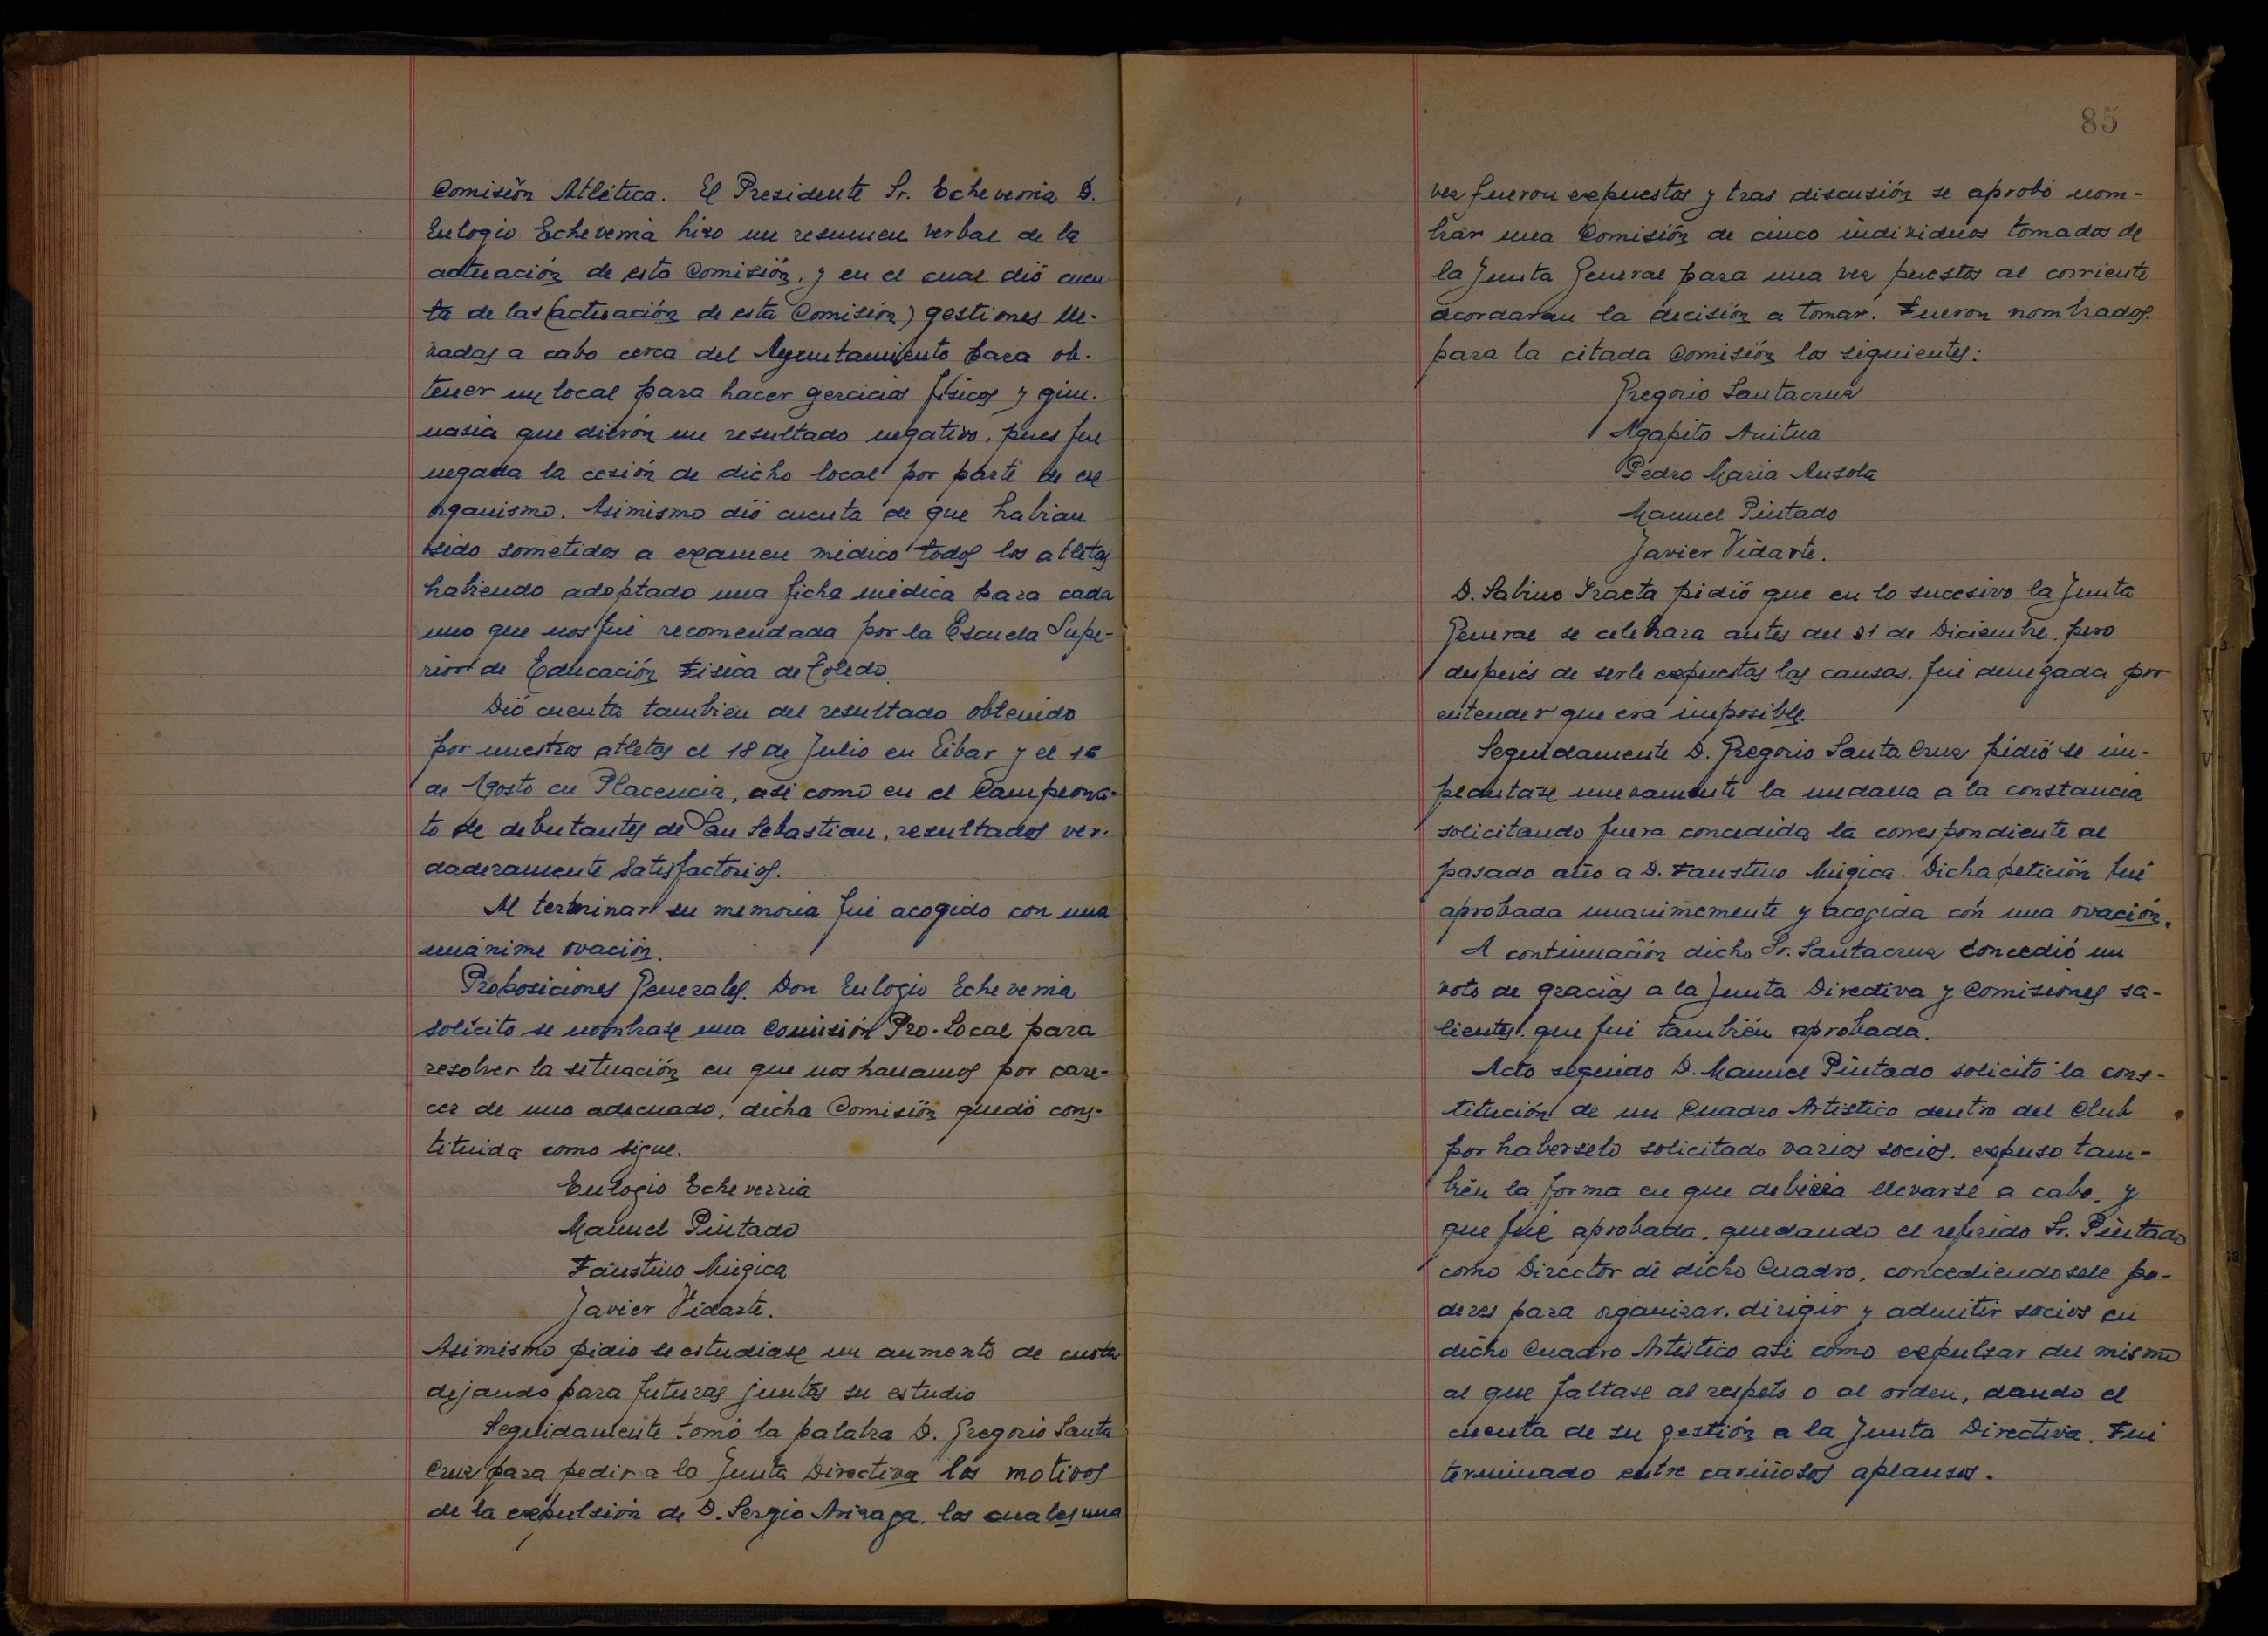 Comisión Atlética. El Presidente Sr. Echeverria D.
Eulogio Echeverria hizo un resumen verbal de la
actuación de esta Comisión, y en el cual dió cuen
ta de las (actuación de esta Comisión) gestiones lle-
vadas a cabo cerca del Ayuntamiento para ob-
tener un local para hacer gercicios físicos y gim-
nasia que dieron un resultado negativo, pues fue
negada la cesión de dicho local por parte de ese
organismo. Asimismo dió cuenta de que habian
sido sometidos a examen médico todos los atletas
habiendo adoptado una ficha médica para cada
uno que nos fué recomendada por la Escuela Supe-
rior de Educación Fisica de Toledo.
Dió cuenta tambien del resultado obtenido
por nuestros atletas el 18 de Julio en Eibar y el 16
de Agosto en Placencia, asi como en el Campeona-
to de debutantes de San Sebastian, resultados ver-
daderamente satisfactorios.
Al terminar su memoria fué acogido con una
unánime ovación.
Proposiciones Generales. Don Eulogio Echeverria
solícito se nombrase una Comisión Pro-Local para
resolver la situación en que nos hallamos por care-
cer de uno adecuado, dicha Comisión quedó cons-
tituida como sigue.
Eulogio Echeverria
Manuel Pintado
Faustino Múgica
Javier Vidarte.
Asimismo pidio se estudiase un aumento de cuota
dejando para futuras juntas su estudio
Seguidamente tomó la palabra D. Gregorio Santa
Cruz para pedir a la Junta Directiva los motivos
de la expulsión de D. Sergio Arizaga, los cuales una
85
vez fueron expuestos y tras discusión se aprobó nom-
brar una Comisión de cinco individuos tomados de
la Junta General para una vez puestos al corriente
acordaran la decisión a tomar. Fueron nombrados
para la citada Comisión los siguientes:
Gregorio Santacruz
Agapito Anitua
Pedro Maria Ansola
Manuel Pintado
Javier Vidarte.
D. Sabino Iraeta pidió que en lo sucesivo la Junta
General se celebrara antes del 31 de Diciembre, pero
después de serle expuestas las causas, fué denegada por
entender que era imposible.
Seguidamente D. Gregorio Santa Cruz pidió se im-
plantase nuevamente la medalla a la constancia
solicitando fuera concedida la correspondiente al
pasado año a D. Faustino Múgica. Dicha petición fué
aprobada unanimemente y acogida con una ovación.
A continuación dicho Sr. Santacruz concedió un
voto de gracias a la Junta Directiva y Comisiones sa-
lientes, que fué también aprobada.
Acto seguido D. Manuel Pintado solicitó la cons-
titución de un Cuadro Artistico dentro del Club
por haberselo solicitado varios socios, expuso tam-
bién la forma en que debiera llevarse a cabo, y
que fué aprobada, quedando el referido Sr. Pintado
como Director de dicho Cuadro, concediendosele po-
deres para organizar, dirigir y admitir socios en
dicho Cuadro Artistico asi como expulsar del mismo
al que faltase al respeto o al orden, dando el
cuenta de su gestión a la Junta Directiva. Fué
terminado entre cariñosos aplausos.